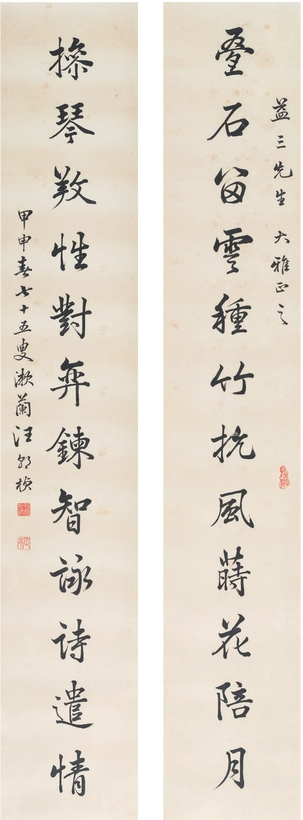 益三先生 大雅正之
叠石留雲種竹挽風蒔花陪月
操琴養性對弈鍊智詠詩遣情
甲申春七十五叟漱蘭汪